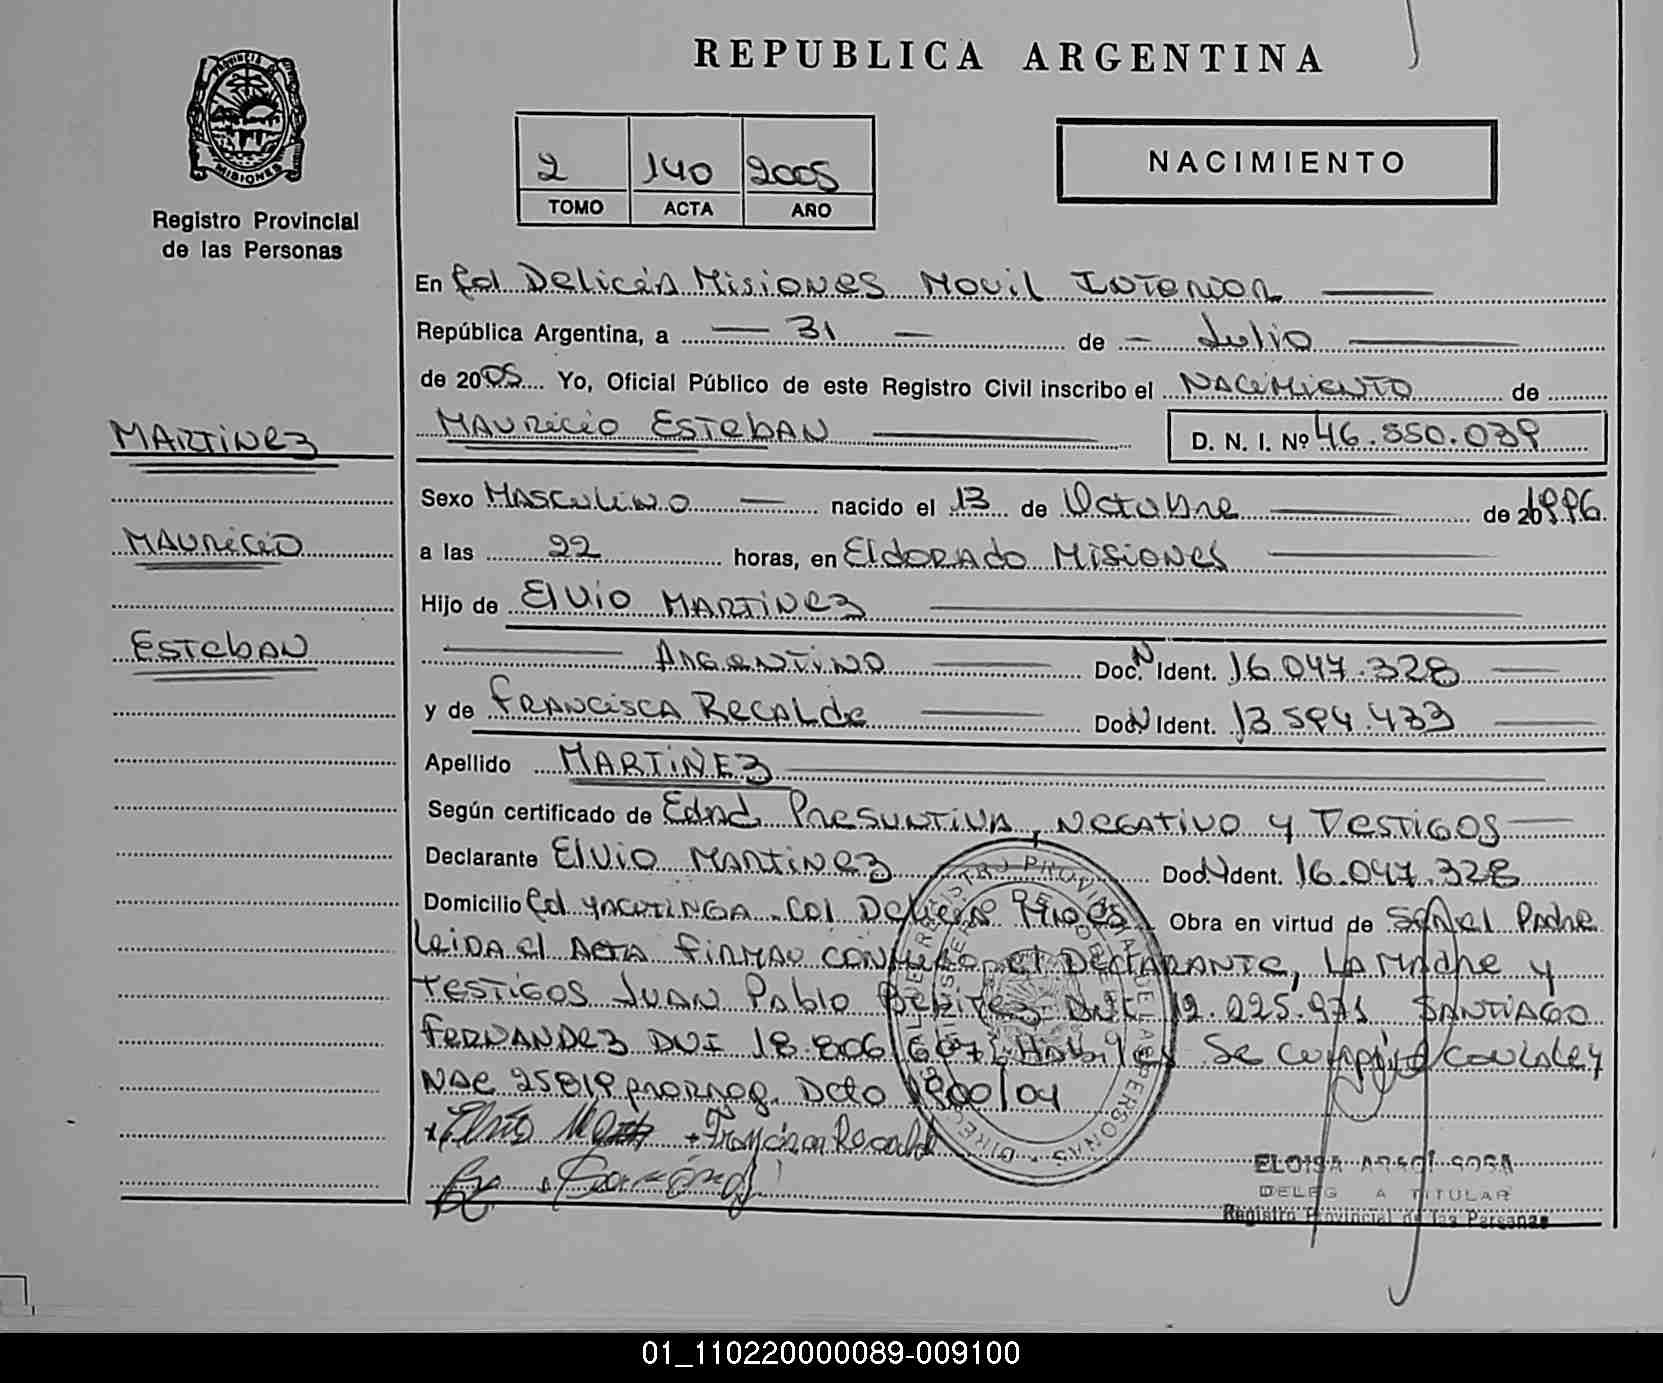 REPUBLICA ARGENTINA
PROVINCIA DE
MISIONES
Registro Provincial
de las Personas
2 140 2005
TOMO ACTA AÑO
NACIMIENTO
En Col Delicia Misiones Movil Interior
República Argentina, a 31 de Julio
de 2005 Yo, Oficial Público de este Registro Civil inscribo el NACIMIENTO de
MAURICIO ESTEBAN D. N. I. Nº 46.550.039
MARTINEZ
MAURICIO
ESTEBAN
Sexo MASCULINO nacido el 13 de Octubre de 1996
a las 22 horas, en Eldorado Misiones
Hijo de Elvio MARTINEZ
ARGENTINO Doc. N Ident. 16.047.328
y de FRANCISCA RECALDE Doc N Ident. 13.594.433
Apellido MARTINEZ
Según certificado de Edad Presuntiva, Negativo y Testigos
Declarante Elvio MARTINEZ Doc. N Ident. 16.047.328
Domicilio Col YACUTINGA - Col Delicia Obra en virtud de Ser el Padre
Leida el Acta firman conmigo el Declarante, La Madre y
Testigos Juan Pablo Benitez DNI 12.225.971 SANTIAGO
FERNANDEZ DNI 18.806.607 Habiles Se cumplió con la Ley
Nac 25819 prorrog. Dcto 1800/04
Francisca Recalde
ELOISA SOSA
DELEGADA TITULAR
Registro Provincial de las Personas
01_110220000089-009100